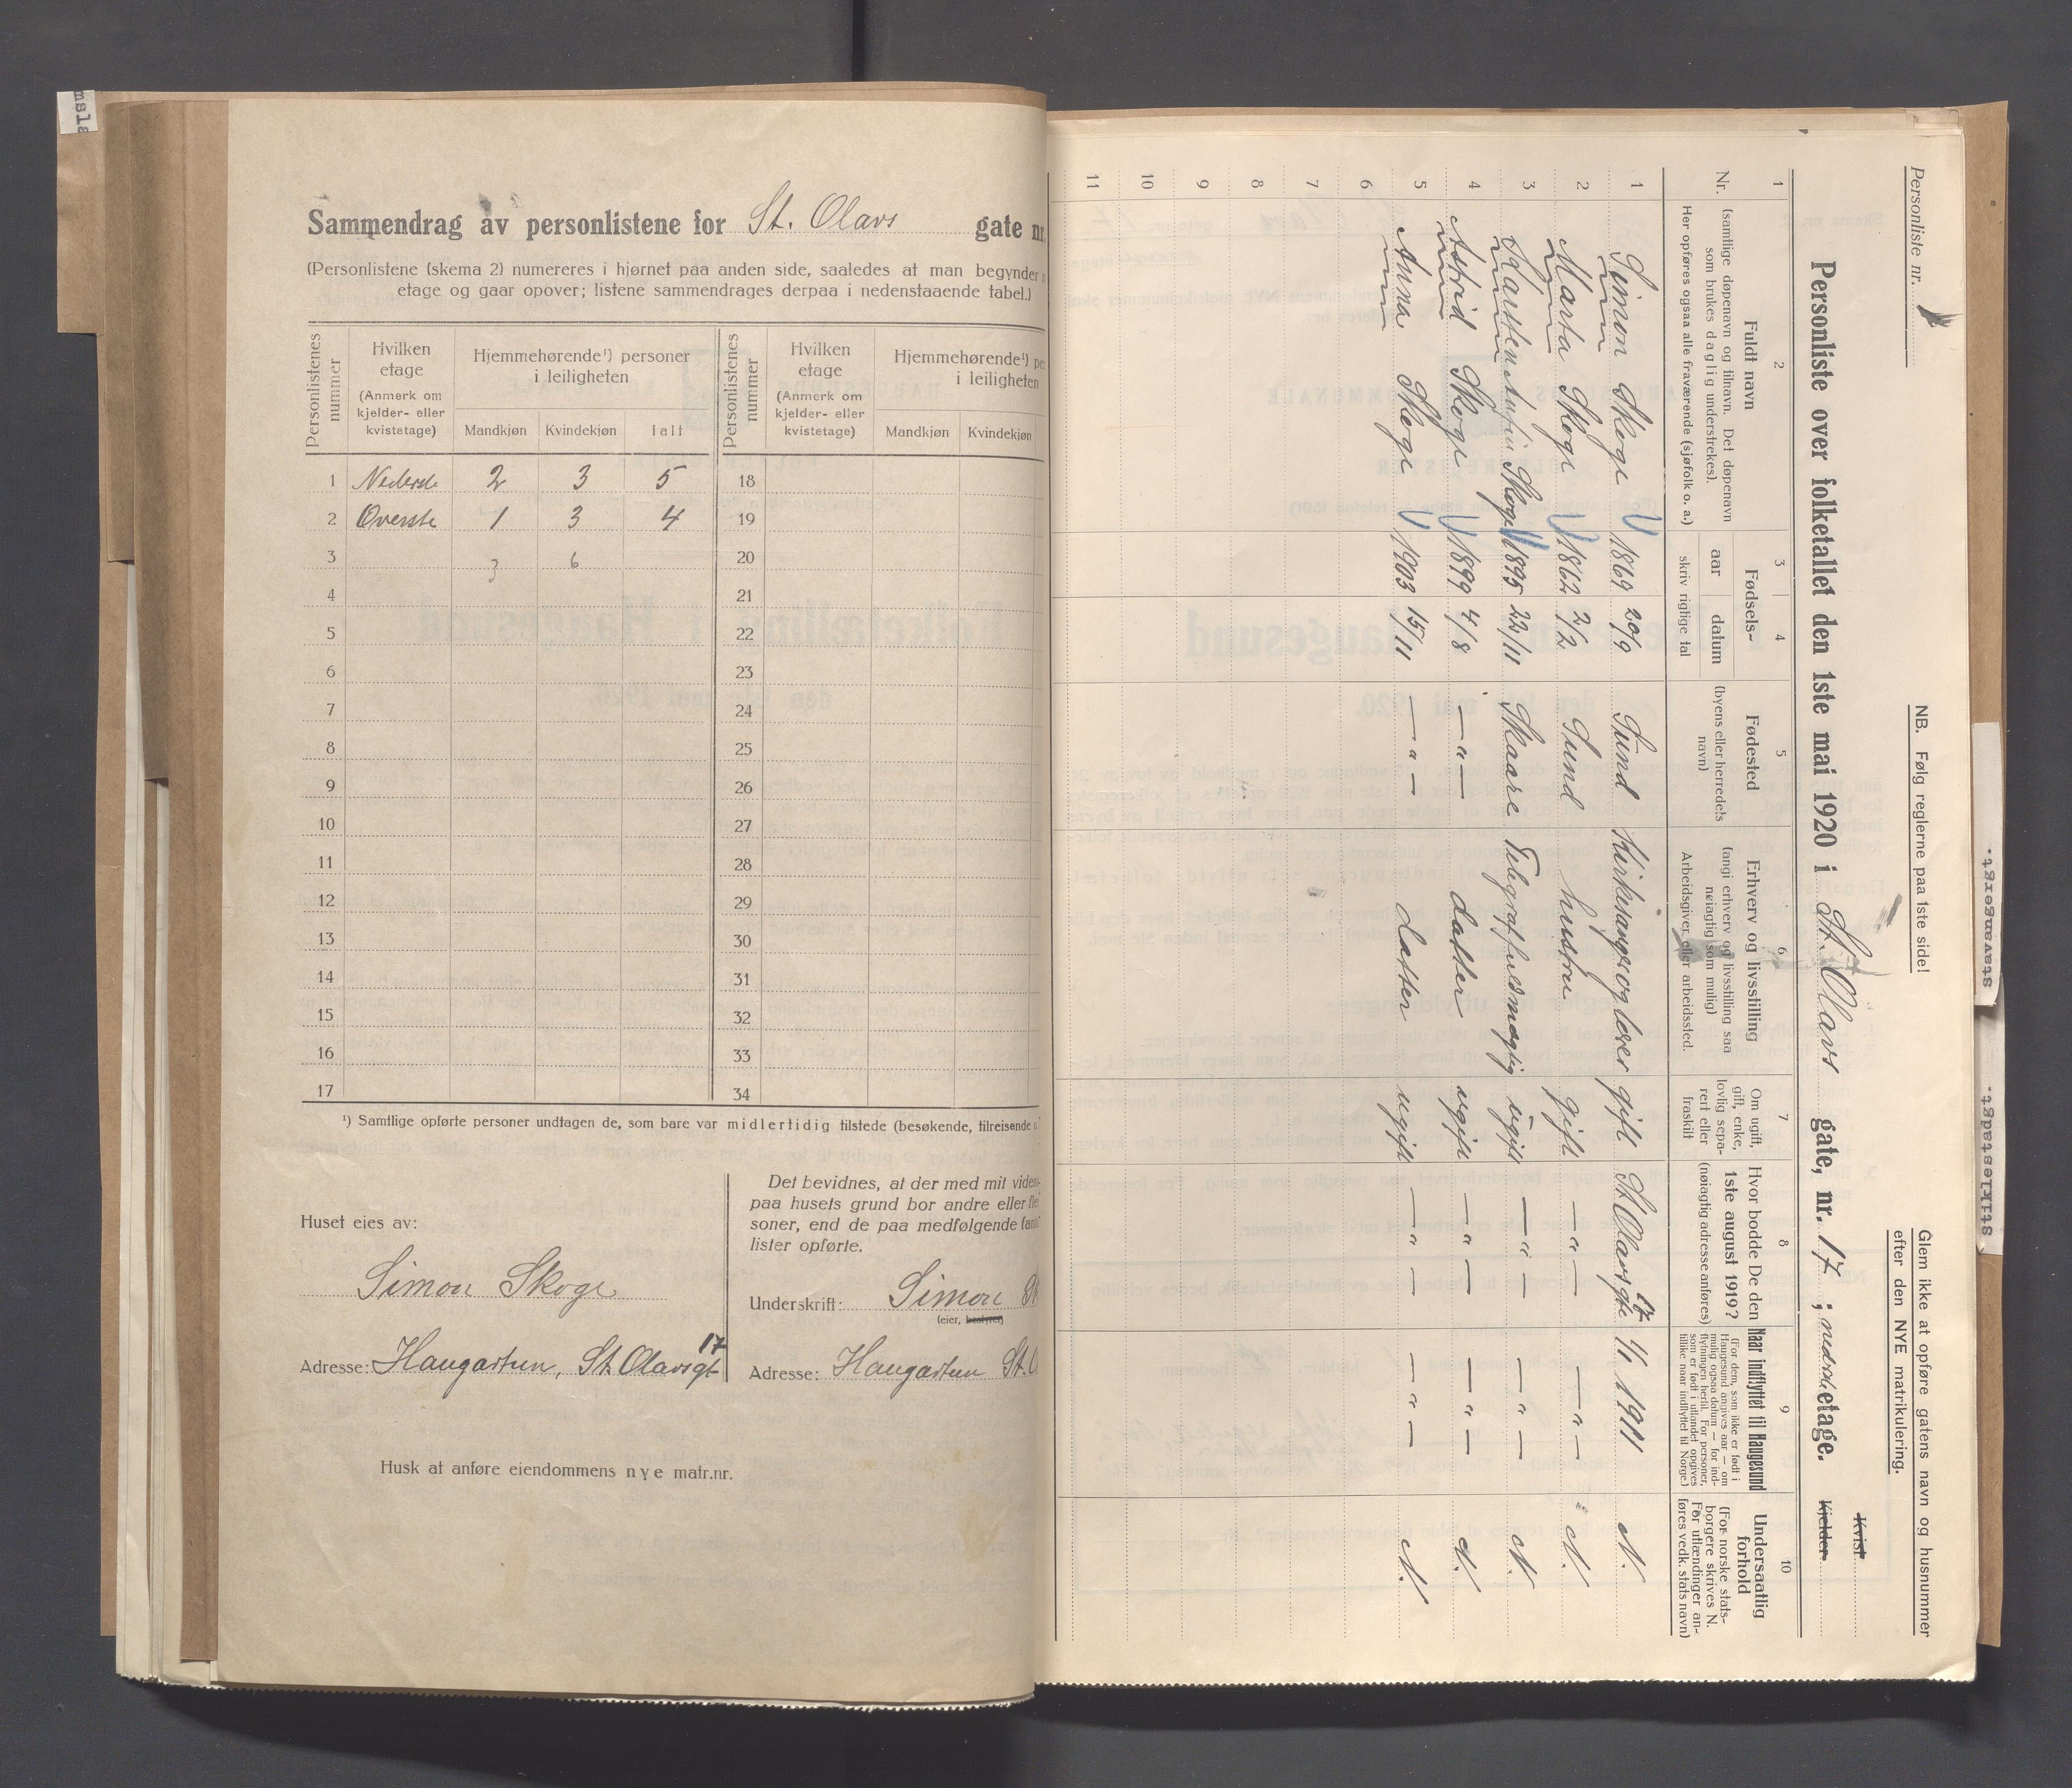 msla
Sammendrag av personlistene for St. Olavs gate nr.
(Personlistene (skema 2) numereres i hjørnet paa anden side, saaledes at man begynder
etage og gaar opover; listene sammendrages derpaa i nedenstaaende tabel.)
Personlistenes nummer | Hvilken etage (Anmerk om kjelder- eller kvistetage) | Hjemmehørende¹) personer i leiligheten | Personlistenes nummer | Hvilken etage (Anmerk om kjelder- eller kvistetage) | Hjemmehørende¹) per i leiligheten
Mandkjøn | Kvindekjøn | Ialt | Mandkjøn | Kvindekjøn
1 Nederste 2 3 5 18
2 Øverste 1 3 4 19
3 3 6 20
4 21
5 22
6 23
7 24
8 25
9 26
10 27
11 28
12 29
13 30
14 31
15 32
16 33
17 34
¹) Samtlige opførte personer undtagen de, som bare var midlertidig tilstede (besøkende, tilreisende o.
Huset eies av:
Simon Skoge
Adresse: Haugastun, St. Olavsgt 17
Det bevidnes, at der med mit viden
paa husets grund bor andre eller fler
soner, end de paa medfølgende (ant
lister opførte.
Underskrift: Simon Sk
(eier, bestyrer)
Adresse: Haugastun St. O
Husk at anføre eiendommens nye matr.nr.
Personliste nr. 1
NB. Følg reglerne paa 1ste side!
Glem ikke at opføre gatens navn og husnummer
efter den NYE matrikulering.
Kvist
Kjelder
Personliste over folketallet den 1ste mai 1920 i St. Olavs gate, nr. 17; nederste etage.
1 2 3 4 5 6 7 8 9 10
Nr.
Fuldt navn
(samtlige døpenavn og tilnavn. Det døpenavn
som brukes daglig understrekes).
Her opføres ogsaa alle fraværende (sjøfolk o. a.)
Fødsels-
aar | datum
skriv rigtige tal
Fødested
(byens eller herredets
navn)
Erhverv og livsstilling
(angi erhverv og livsstilling saa
nøiagtig som mulig)
Arbeidsgiver eller arbeidssted.
Om ugift,
gift, enke,
lovlig sepa-
rert eller
fraskilt
Hvor bodde De den
1ste august 1919?
(nøiagtig adresse anføres)
Naar indflyttet til Haugesund
(For dem, som ikke er født i
Haugesund angives aar — om
mulig ogsaa datum — for ind-
flytningen hertil. For personer,
som er født i utlandet opgives
tillike naar indflyttet til Norge.)
Undersaatlig
forhold
(For norske stats-
borgere skrives N.
For utlændinger an-
føres vedk. stats navn)
1 Simon Skoge 1869 20/9 Sund Kirkesanger og lærer gift St Olavsgt 17 1/1 1911 N.
2 Marta Skoge 1862 2/2 Sund hustru gift —"— —"— N.
3 Skoge 1895 22/11 Skaare Telegraffuldmægtig ugift —"— —"— N.
4 Astrid Skoge 1899 4/8 —"— datter ugift —"— —"— N.
5 Anna Skoge 1903 15/11 —"— datter ugift —"— —"— N.
6
7
8
9
10
11
stavangergt.
stiklestadgt.